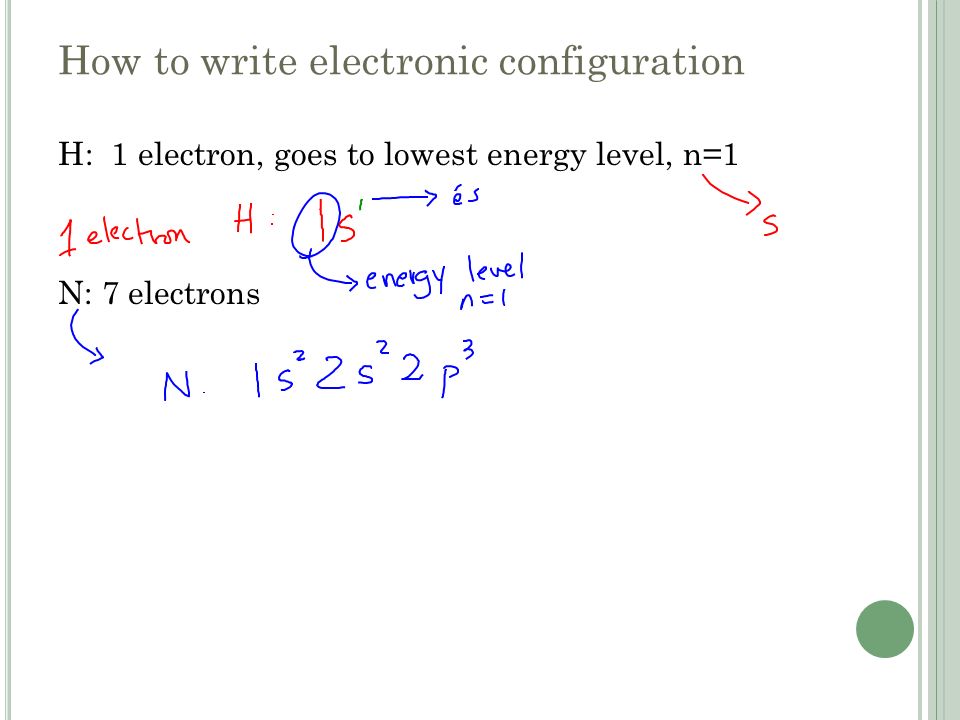 How to write electronic configuration
H: 1 electron, goes to lowest energy level, n=1
s
1 electron H: 1s¹ → és
energy level
n=1
N: 7 electrons
N. 1s²2s²2p³